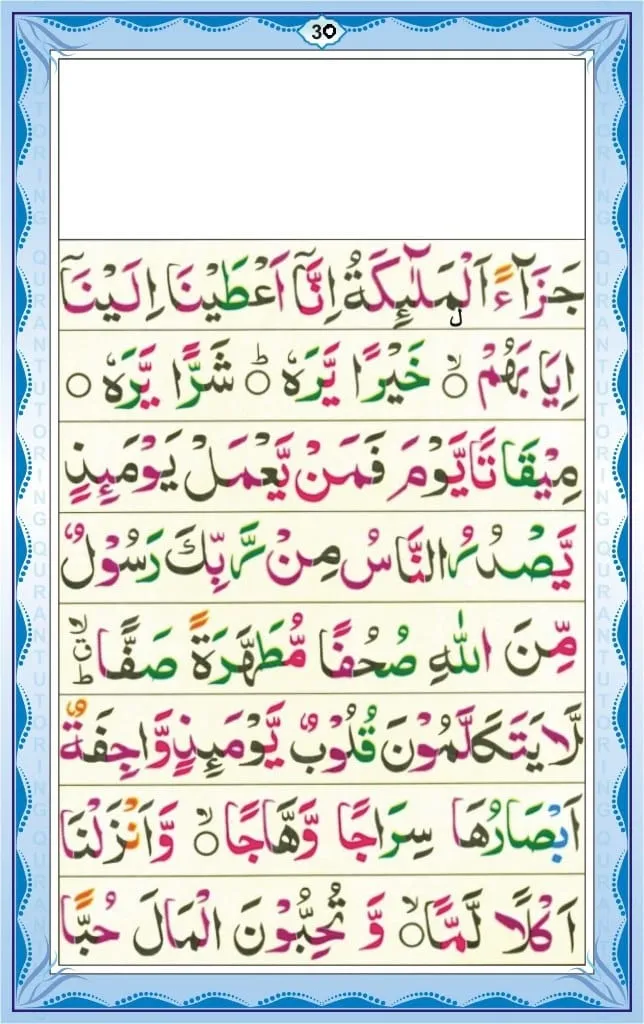 30
جَزَآءً اَلْمَلٰٓئِكَةُ اِنَّاۤ اَعْطَيْنَا اِلَيْنَاۤ
اِيَابَهُمْ ۙ خَيْرًا يَّرَهٗ ؕ شَرًّا يَّرَهٗ ○
مِيْقَاتًا يَّوْمَ فَمَنْ يَّعْمَلْ يَوْمَئِذٍ
يَّصْدُرُ النَّاسُ مِنْ رَّبِّكَ رَسُوْلٌ
مِّنَ اللّٰهِ صُحُفًا مُّطَهَّرَةً صَفًّا
لَّا يَتَكَلَّمُوْنَ قُلُوْبٌ يَّوْمَئِذٍ وَّاجِفَةٌ
اَبْصَارُهَا سِرَاجًا وَّهَّاجًا ۙ وَّاَنْزَلْنَا
اَكْلًا لَّمًّا ۙ وَّ تُحِبُّوْنَ الْمَالَ حُبًّا
QURAN TUTORING QURAN TUTORING
QURAN TUTORING QURAN TUTORING